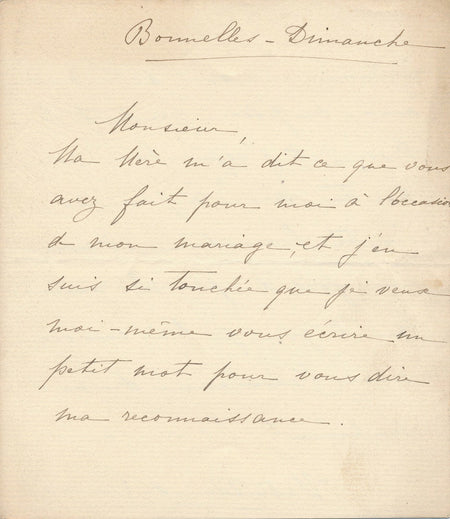 Bonnelles - Dimanche
Monsieur,
Ma Mère m'a dit ce que vous
avez fait pour moi à l'occasion
d mon mariage, et j'en
suis si touchée que je veux
moi-même vous écrire un
petit mot pour vous dire
ma reconnaissance.